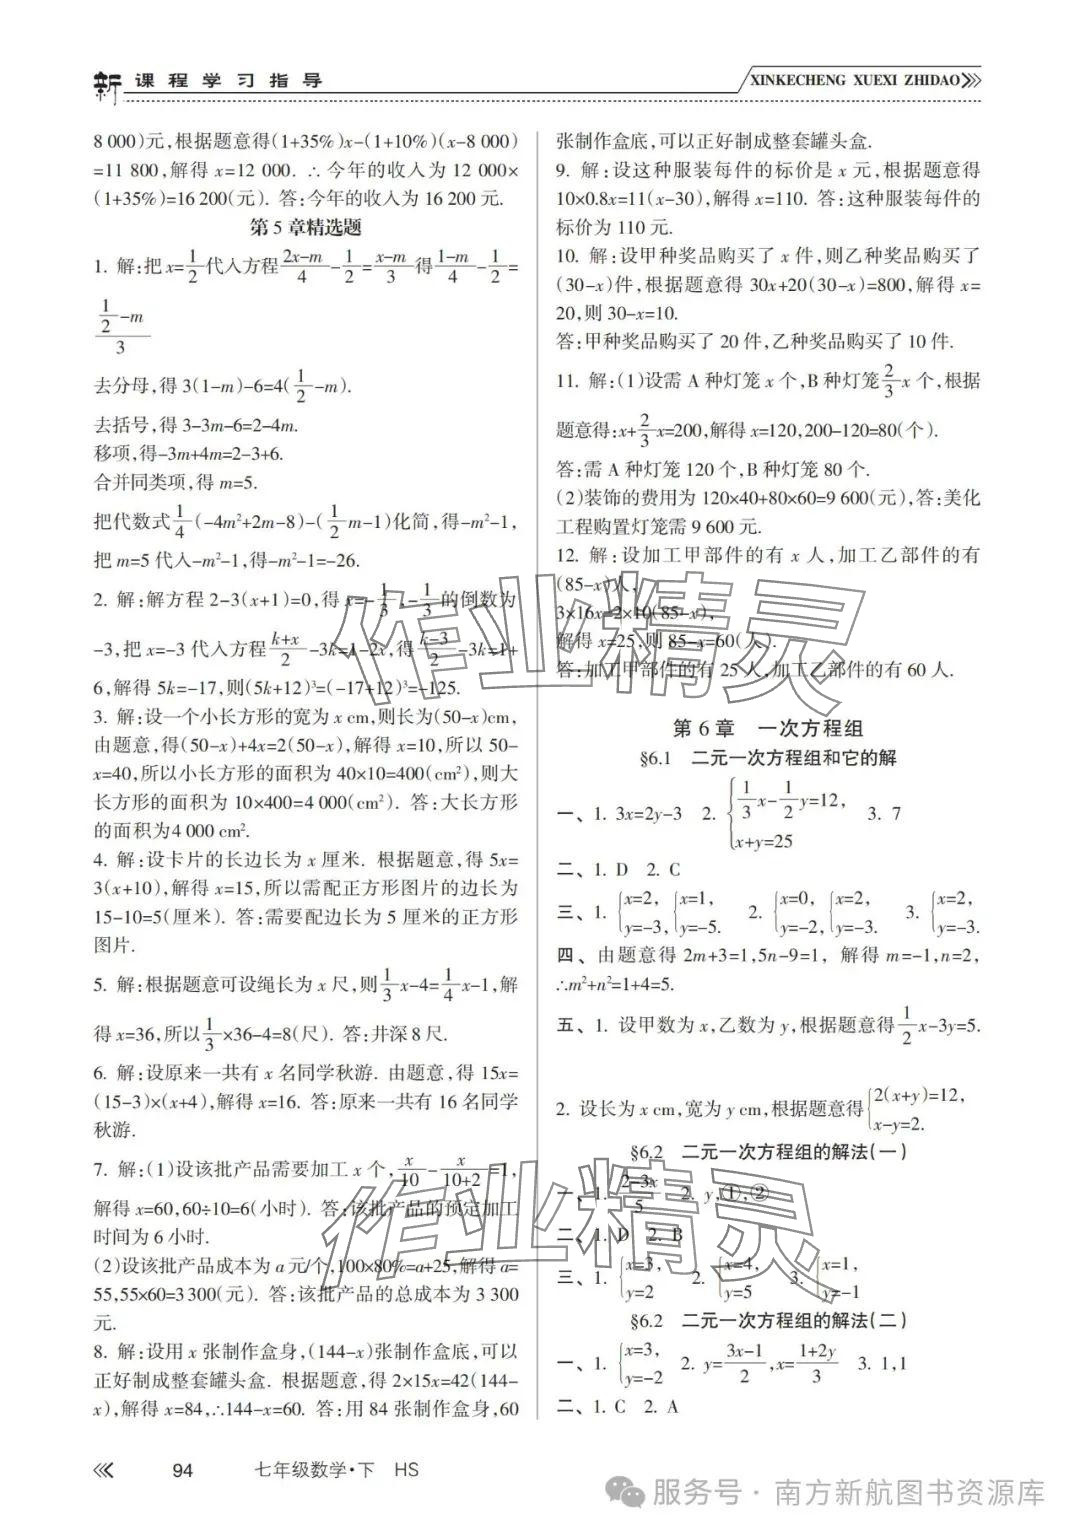 新课程学习指导
XINKECHENG XUEXI ZHIDAO
8 000)元,根据题意得(1+35%)x-(1+10%)(x-8 000)
=11 800,解得 x=12 000. ∴今年的收入为 12 000×
(1+35%)=16 200(元). 答:今年的收入为 16 200 元.
第 5 章精选题
1. 解:把 x=1/2代入方程(2x-m)/4-1/2=(x-m)/3 得(1-m)/4-1/2=
(1/2-m)/3
去分母,得 3(1-m)-6=4(1/2-m).
去括号,得 3-3m-6=2-4m.
移项,得-3m+4m=2-3+6.
合并同类项,得 m=5.
把代数式1/4(-4m²+2m-8)-(1/2m-1)化简,得-m²-1,
把 m=5 代入-m²-1,得-m²-1=-26.
2. 解:解方程 2-3(x+1)=0,得 x=-1/3,-1/3的倒数为
-3,把 x=-3 代入方程(k+x)/2-3k=1-2x,得(k-3)/2-3k=1+
6,解得 5k=-17,则(5k+12)³=(-17+12)³=-125.
3. 解:设一个小长方形的宽为 x cm,则长为(50-x)cm,
由题意,得(50-x)+4x=2(50-x),解得 x=10,所以 50-
x=40,所以小长方形的面积为 40×10=400(cm²),则大
长方形的面积为 10×400=4 000(cm²). 答:大长方形
的面积为4 000 cm².
4. 解:设卡片的长边长为 x 厘米. 根据题意,得 5x=
3(x+10),解得 x=15,所以需配正方形图片的边长为
15-10=5(厘米). 答:需要配边长为 5 厘米的正方形
图片.
5. 解:根据题意可设绳长为 x 尺,则1/3x-4=1/4x-1,解
得 x=36,所以1/3×36-4=8(尺). 答:井深 8 尺.
6. 解:设原来一共有 x 名同学秋游. 由题意,得 15x=
(15-3)×(x+4),解得 x=16. 答:原来一共有 16 名同学
秋游.
7. 解:(1)设该批产品需要加工 x 个,x/10-x/(10+2)=1,
解得 x=60,60÷10=6(小时). 答:该批产品的预定加工
时间为 6 小时.
(2)设该批产品成本为 a 元/个,100×80%=a+25,解得 a=
55,55×60=3 300(元). 答:该批产品的总成本为 3 300
元.
8. 解:设用 x 张制作盒身,(144-x)张制作盒底,可以
正好制成整套罐头盒. 根据题意,得 2×15x=42(144-
x),解得 x=84,∴144-x=60. 答:用 84 张制作盒身,60
张制作盒底,可以正好制成整套罐头盒.
9. 解:设这种服装每件的标价是 x 元,根据题意得
10×0.8x=11(x-30),解得 x=110. 答:这种服装每件的
标价为 110 元.
10. 解:设甲种奖品购买了 x 件,则乙种奖品购买了
(30-x)件,根据题意得 30x+20(30-x)=800,解得 x=
20,则 30-x=10.
答:甲种奖品购买了 20 件,乙种奖品购买了 10 件.
11. 解:(1)设需 A 种灯笼 x 个,B 种灯笼2/3x 个,根据
题意得:x+2/3x=200,解得 x=120,200-120=80(个).
答:需 A 种灯笼 120 个,B 种灯笼 80 个.
(2)装饰的费用为 120×40+80×60=9 600(元),答:美化
工程购置灯笼需 9 600 元.
12. 解:设加工甲部件的有 x 人,加工乙部件的有
(85-x)人,
3×16x=2×10(85-x),
解得 x=25,则 85-x=60(人).
答:加工甲部件的有 25 人,加工乙部件的有 60 人.
第 6 章 一次方程组
§6.1 二元一次方程组和它的解
一、1. 3x=2y-3 2. {1/3x-1/2y=12, x+y=25 3. 7
二、1. D 2. C
三、1. {x=2, y=-3, {x=1, y=-5. 2. {x=0, y=-2, {x=2, y=-3. 3. {x=2, y=-3.
四、由题意得 2m+3=1,5n-9=1, 解得 m=-1,n=2,
∴m²+n²=1+4=5.
五、1. 设甲数为 x,乙数为 y,根据题意得1/2x-3y=5.
2. 设长为 x cm,宽为 y cm,根据题意得{2(x+y)=12, x-y=2.
§6.2 二元一次方程组的解法(一)
一、1. (2-3x)/5 2. y,①,②
二、1. D 2. B
三、1. {x=3, y=2 2. {x=4, y=5 3. {x=1, y=-1
§6.2 二元一次方程组的解法(二)
一、1. {x=3, y=-2 2. y=(3x-1)/2,x=(1+2y)/3 3. 1,1
二、1. C 2. A
作业精灵
作业精灵
94 七年级数学·下 HS
服务号·南方新航图书资源库